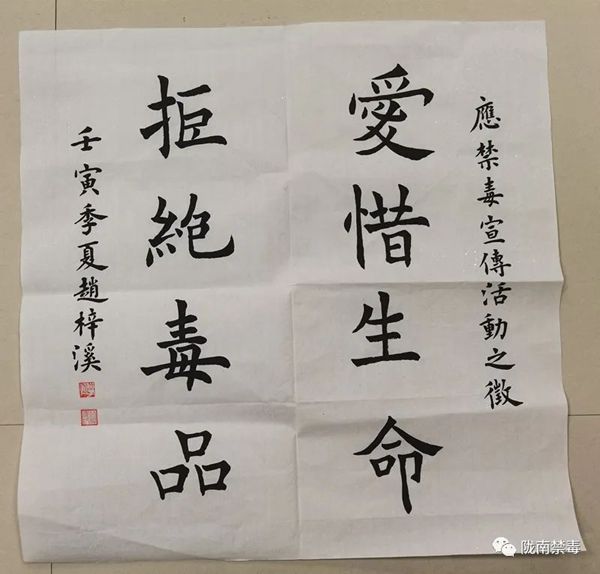 應禁毒宣傳活動之徵
愛惜生命
拒絕毒品
壬寅季夏趙梓溪
陇南禁毒